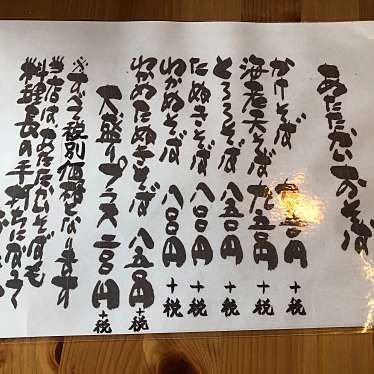 あたたかいおそば
かけそば 円+税
海老天そば 九五〇円+税
とろろそば 八五〇円+税
たぬきそば 八〇〇円+税
わかめそば 八〇〇円+税
わかめたぬきそば 八五〇円+税
大盛りプラス 二〇〇円+税
※すべて税別価格となります
当店はあたたかいそばも
料理長の手打ちによって